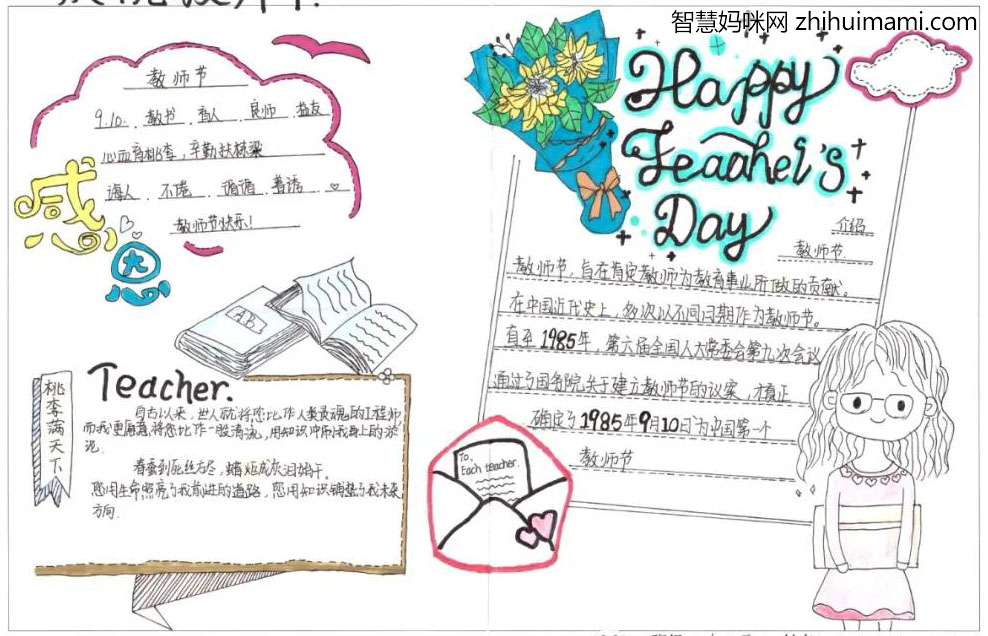 智慧妈咪网 zhihuimami.com
教师节
9.10. 教书 育人 良师 益友
心血育桃李,辛勤扶栋梁
诲人 不倦 循循 善诱
教师节快乐!
感
恩
AB
Teacher.
桃李满天下
自古以来,世人就将您比作人类灵魂的工程师
而我更愿意将您比作一股清流,用知识冲刷我身上的淤
泥.
春蚕到死丝方尽,蜡炬成灰泪始干。
您用生命照亮了我前进的道路,您用知识铺垫了我未来
方向.
Happy
Teacher's
Day
介绍
教师节.
教师节,旨在肯定教师为教育事业所做的贡献。
在中国近代史上,多次以不同日期作为教师节。
直至1985年,第六届全国人大常委会第九次会议
通过了国务院关于建立教师节的议案,才真正
确定了1985年9月10日为中国第一个
教师节
To.
Each teacher.